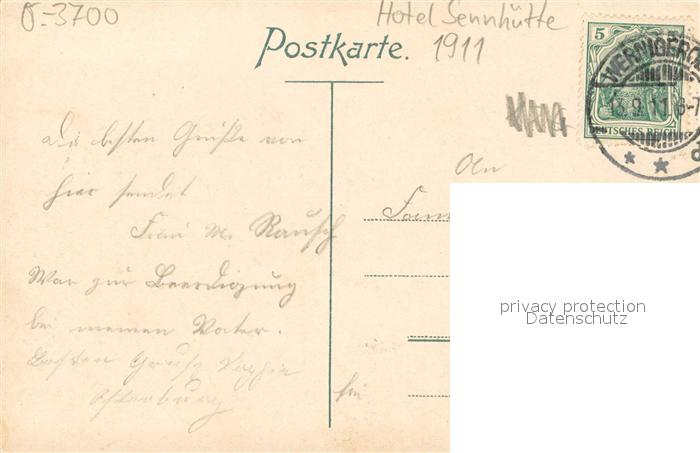 O-3700
Hotel Sennhütte
1911
Postkarte.
5
DEUTSCHES REICH
WERNIGERO
13.9.11.6-7
Die besten Grüße von
hier sendet
Frau M. Rausch
War zur Beerdigung
bei meinen Vater.
Besten Gruß
An
privacy protection
Datenschutz